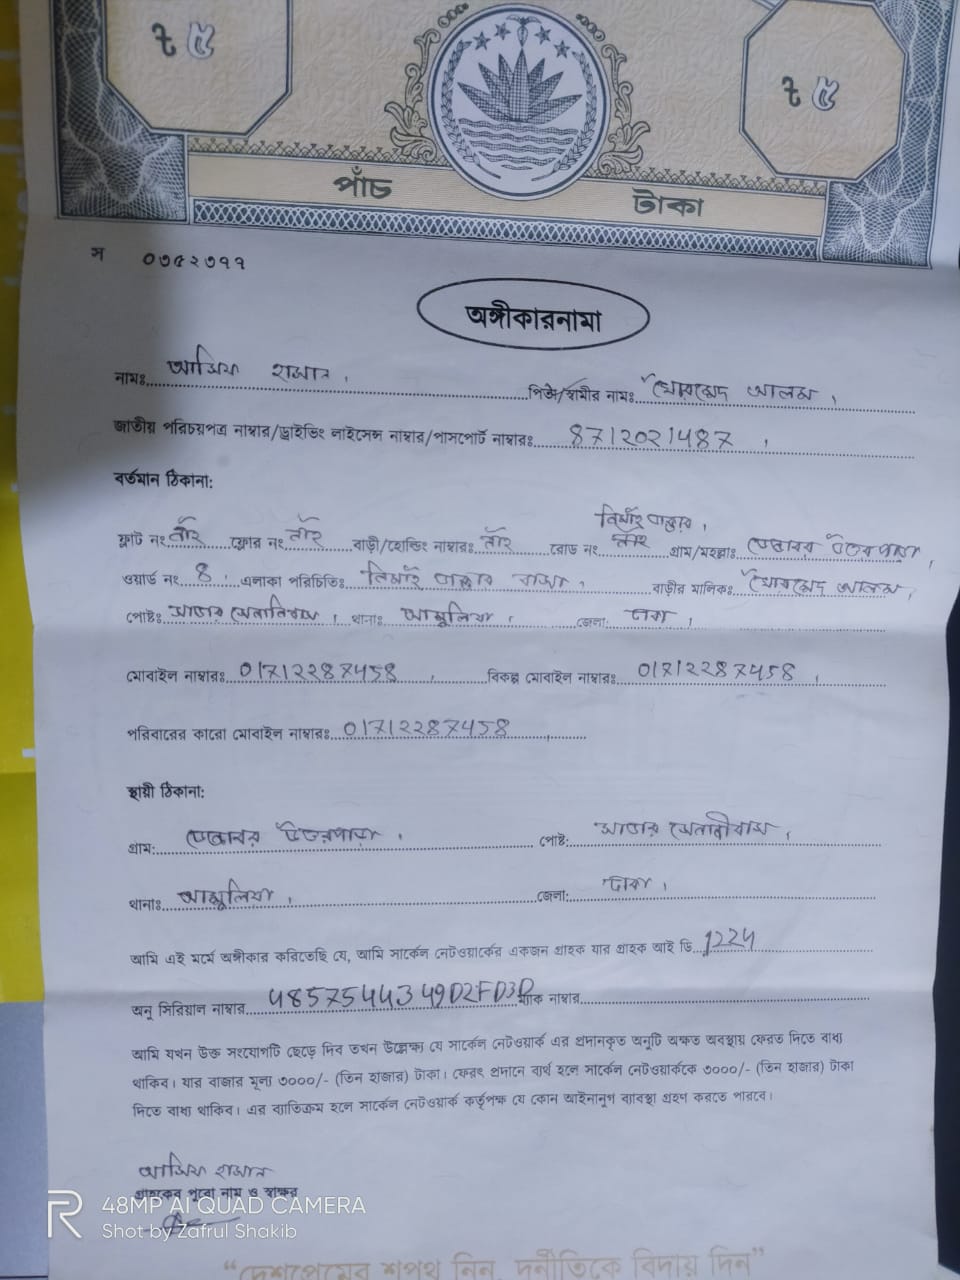 ৳ ৫
৳ ৫
পাঁচ টাকা
স ০৩৫২৩৭৭
অঙ্গীকারনামা
নামঃ আসিফ হাসান। পিতা/স্বামীর নামঃ খোরশেদ আলম।
জাতীয় পরিচয়পত্র নাম্বার/ড্রাইভিং লাইসেন্স নাম্বার/পাসপোর্ট নাম্বারঃ 8712021487।
বর্তমান ঠিকানা:
ফ্লাট নং নাই ফ্লোর নং নাই বাড়ী/হোল্ডিং নাম্বারঃ নাই রোড নং নাই গ্রাম/মহল্লাঃ উত্তরপাড়া,
ওয়ার্ড নং 8, এলাকা পরিচিতিঃ বাসা, বাড়ীর মালিকঃ খোরশেদ আলম,
পোষ্টঃ সাভার সেনানিবাস, থানাঃ আশুলিয়া, জেলা: ঢাকা,
মোবাইল নাম্বারঃ 01712287458, বিকল্প মোবাইল নাম্বারঃ 01712287458,
পরিবারের কারো মোবাইল নাম্বারঃ 01712287458
স্থায়ী ঠিকানা:
গ্রাম: উত্তরপাড়া, পোষ্ট: সাভার সেনানীবাস,
থানাঃ আশুলিয়া, জেলা: ঢাকা,
আমি এই মর্মে অঙ্গীকার করিতেছি যে, আমি সার্কেল নেটওয়ার্কের একজন গ্রাহক যার গ্রাহক আই ডি 1224
অনু সিরিয়াল নাম্বার 4857544349D2FD3D ম্যাক নাম্বার
আমি যখন উক্ত সংযোগটি ছেড়ে দিব তখন উল্লেক্ষ্য যে সার্কেল নেটওয়ার্ক এর প্রদানকৃত অনুটি অক্ষত অবস্থায় ফেরত দিতে বাধ্য
থাকিব। যার বাজার মূল্য ৩০০০/- (তিন হাজার) টাকা। ফেরৎ প্রদানে ব্যর্থ হলে সার্কেল নেটওয়ার্ককে ৩০০০/- (তিন হাজার) টাকা
দিতে বাধ্য থাকিব। এর ব্যাতিক্রম হলে সার্কেল নেটওয়ার্ক কর্তৃপক্ষ যে কোন আইনানুগ ব্যাবস্থা গ্রহণ করতে পারবে।
আসিফ হাসান
গ্রাহকের পুরো নাম ও স্বাক্ষর
48MP AI QUAD CAMERA
Shot by Zafrul Shakib
“দেশপ্রেমের শপথ নিন, দুর্নীতিকে বিদায় দিন”